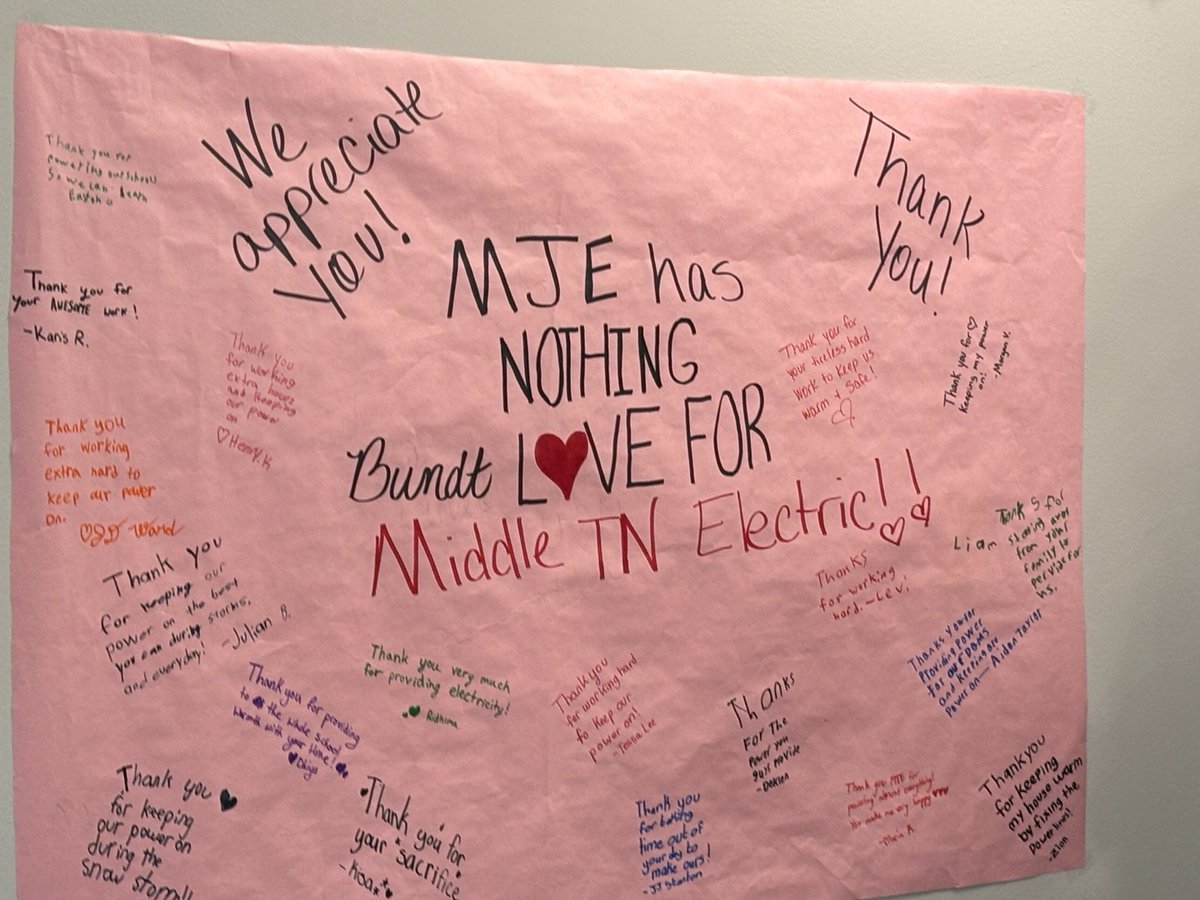 We
appreciate
You!
Thank
You!
MJE has
NOTHING
Bundt LOVE FOR
Middle TN Electric!!
Thank you for
powering our schools
So we can learn
Thank you for
your AWESOME work!
-Kan's R.
Thank you
for working
extra hours
and keeping
our power
on
Henry.K
Thank you for
your tireless hard
work to keep us
warm + Safe!
Thank you for
keeping my power
on!
-Morgan V.
Thank you
for working
extra hard to
keep our power
on.
Thank you
for keeping our
power on the best
you can during storms,
and everyday!
-Julian B.
Thanks
for working
hard. -Lev!
Liam
for
staying away
from your
family to
hs.
Thank you for providing
to the whole school
warmth with your
Thank you very much
for providing electricity!
Ridhima
Thank you
for working hard
to keep our
power on!
-Tessa Lee
Thanks
For The
Power you
guys provide
Thanks you for
Providing Power
For our
and keeping our
power on— Aidan Taylor
Thank you
for keeping
our power on
during the
snow storm!!
Thank you for
your sacrifice
Thank you
for taking
time out of
your day to
make ours!
-JJ Stanton
Thank you MTE for
powering almost everything!
You make me very happy
-Maria A.
Thank you
for keeping
my house warm
by fixing the
powerlines!
-Zion